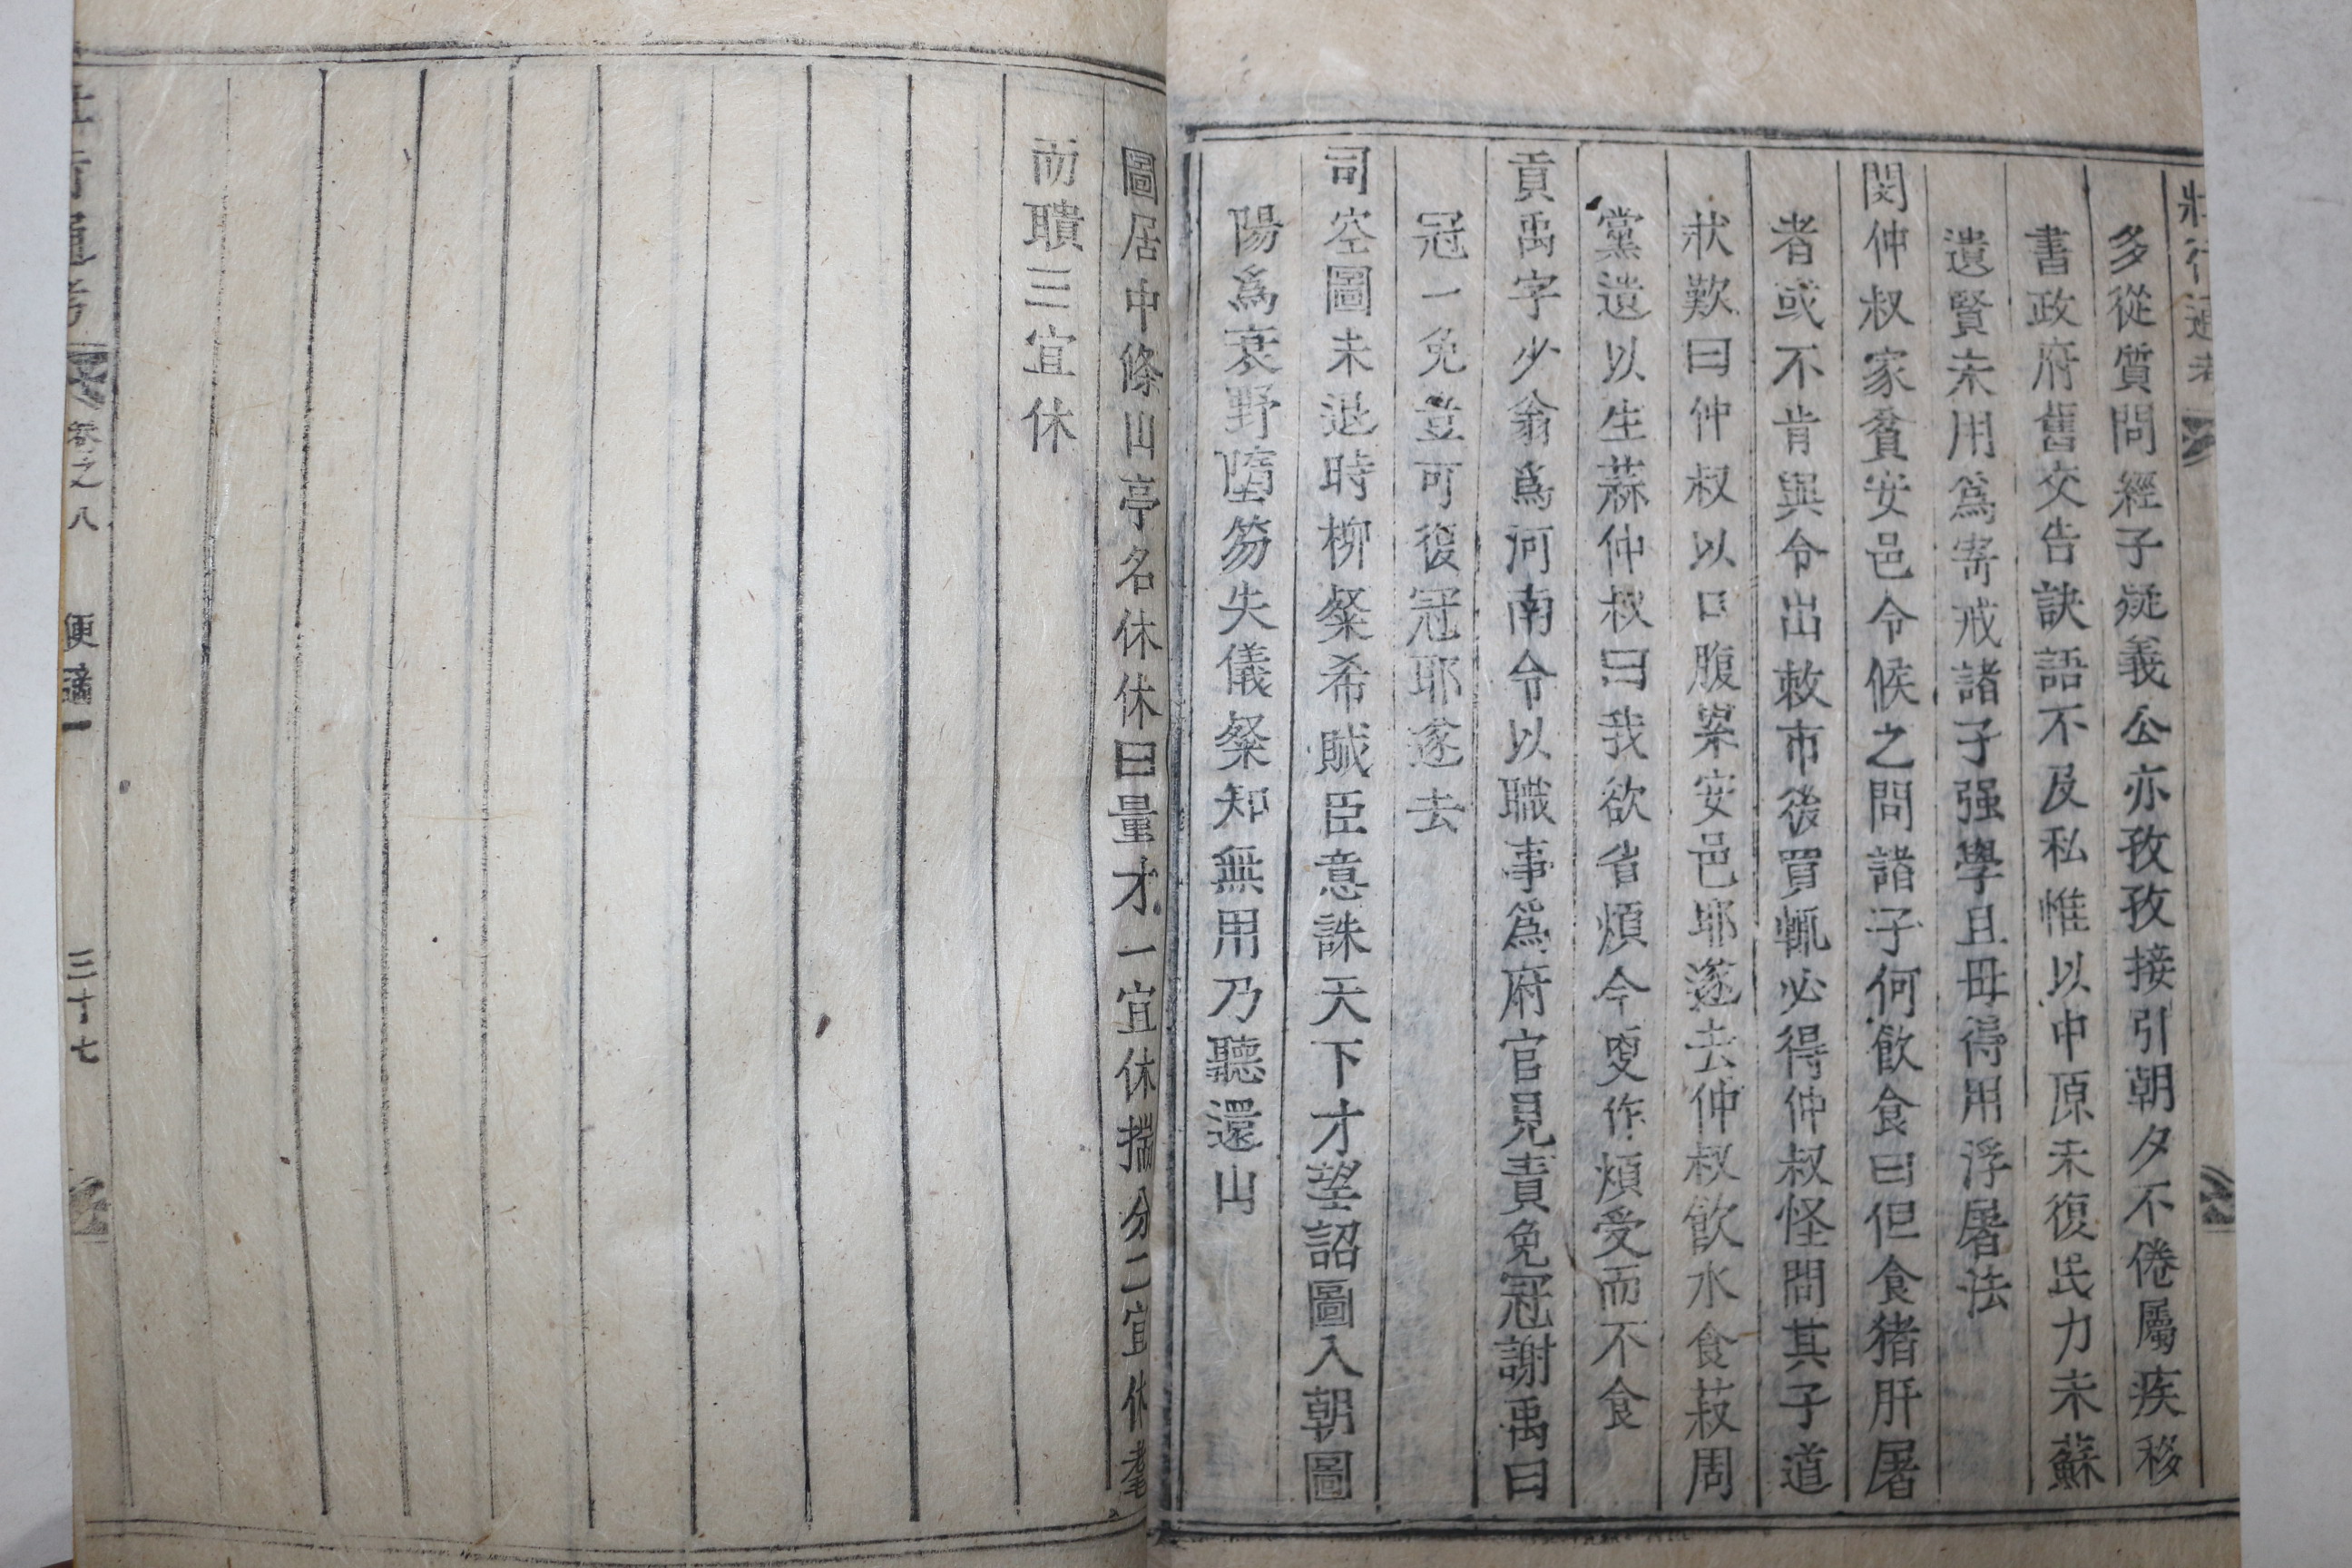 多從質問經子疑義公亦孜孜接引朝夕不倦屬疾移
書政府舊交告訣語不及私惟以中原未復民力未蘇
遺賢未用爲寄戒諸子强學且毋得用浮屠法
閔仲叔家貧安邑令候之問諸子何飮食曰但食猪肝屠
者或不肯與令出敕市後買輒必得仲叔怪問其子道
狀歎曰仲叔以口腹累安邑耶遂去仲叔飮水食菽周
黨遺以生蒜仲叔曰我欲省煩今更作煩受而不食
貢禹字少翁爲河南令以職事爲府官見責免冠謝禹曰
冠一免豈可復冠耶遂去
司空圖未退時柳粲希賊臣意誅天下才望詔圖入朝圖
陽爲衰野墮笏失儀粲知無用乃聽還山
圖居中條山亭名休休曰量才一宜休揣分二宜休耄
而聵三宜休
卷之八 便 三十七